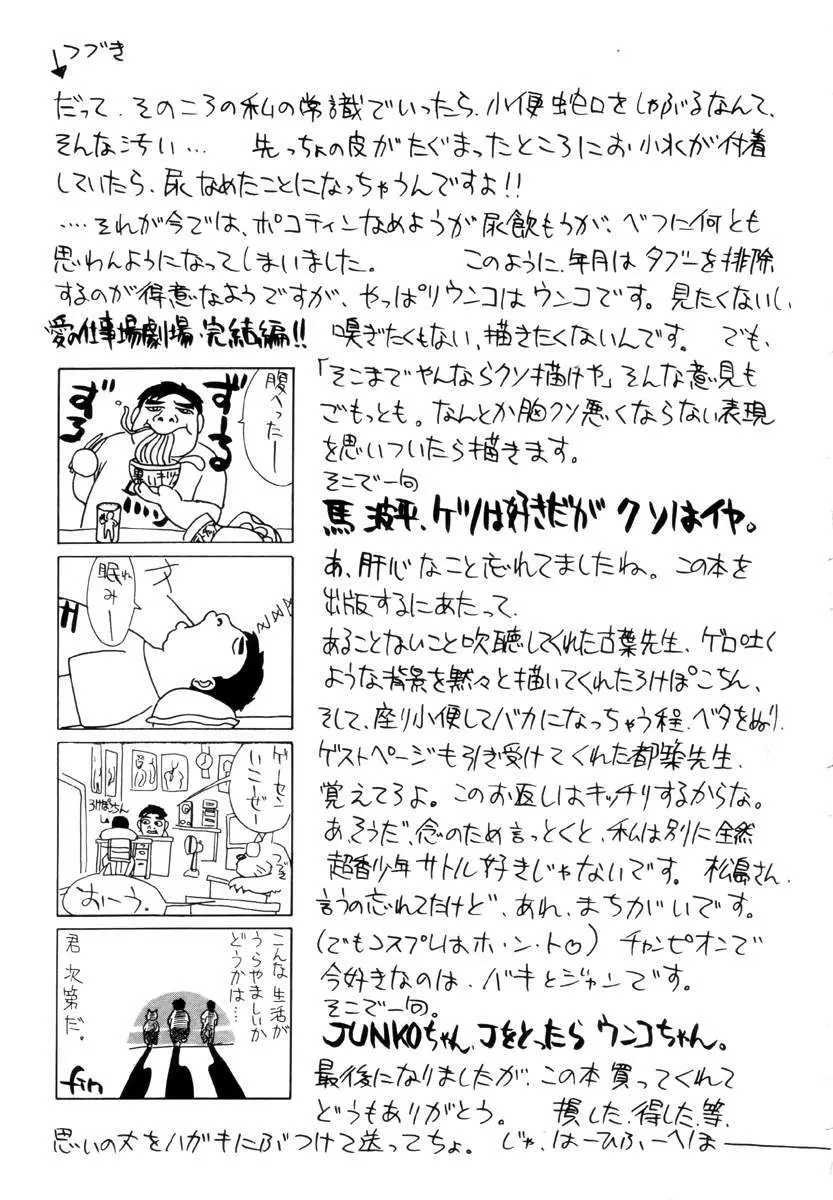 つづき
だって、そのころの私の常識でいったら、小便蛇口をしゃぶるなんて、
そんな汚い… 先っちょの皮がたぐまったところにお小水が付着
していたら、尿なめたことになっちゃうんですよ!!
‥‥それが今では、ポコティンなめようが尿飲もうが、べつに何とも
思わんようになってしまいました。 このように、年月はタブーを排除
するのが得意なようですが、やっぱりウンコはウンコです。見たくないし、
嗅ぎたくもない、描きたくないんです。 でも、
「そこまでやんならクソ描けや」そんな意見も
ごもっとも。なんとか胸クソ悪くならない表現
を思いついたら描きます。
そこで一句
馬並平、ケツは好きだが クソはイヤ。
あ、肝心なこと忘れてましたね。この本を
出版するにあたって、
あることないこと吹聴してくれた古葉先生、ゲロ吐く
ような背景を黙々と描いてくれたろけぽこちん、
そして、座り小便してバカになっちゃう程、ベタをぬり、
ゲストページも引き受けてくれた都築先生、
覚えてろよ。このお返しはキッチリするからな。
あ、そうだ、念のため言っとくと、私は別に全然
超香少年サトル好きじゃないです。 松島さん、
言うの忘れてたけど、あれ、まちがいです。
(でもコスプレはホ・ン・ト♡) チャンピオンで
今好きなのは、バキとジャンです。
そこで一句。
JUNKOちゃん、Jをとったら ウンコちゃん。
最後になりましたが、この本買ってくれて
どうもありがとう。 損した、得した、等、
思いの丈をハガキにぶつけて送ってちょ。 じゃ、はーひふーへほー
愛の仕事場劇場・完結編!!
腹へったー
ずるずーる
眠みー
ねむ
ゲーセン
いこーぜー
ろけぽこちん
おーう.
こんな生活が
うらやましいか
どうかは…
君次第だ。
fin